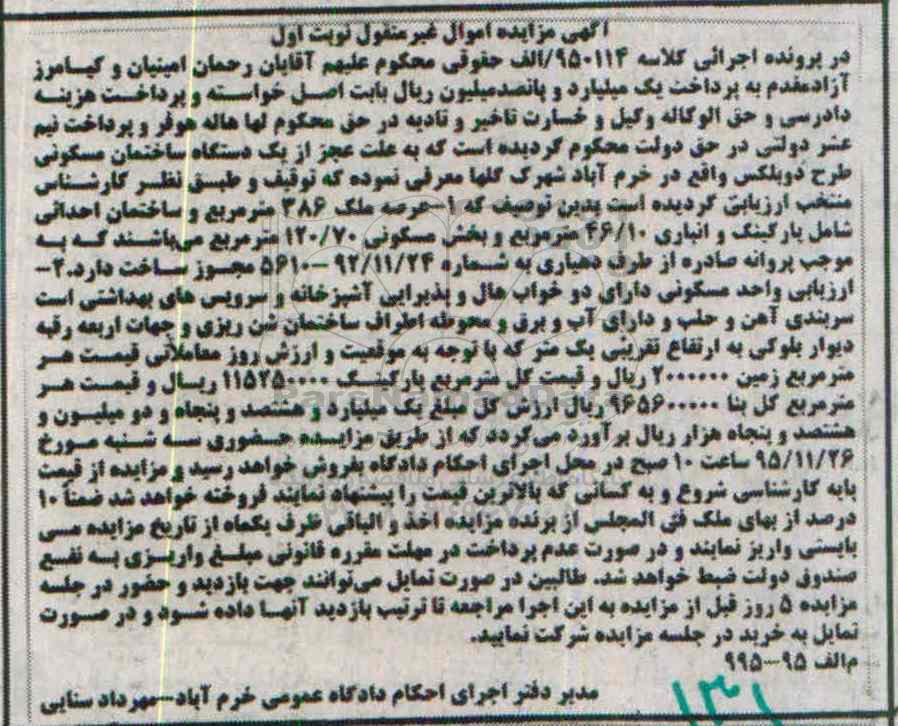 آگهی مزایده اموال غیرمنقول نوبت اول
در پرونده اجرائی کلاسه ۹۵۰۱۱۴/الف حقوقی محکوم علیهم آقایان رحمان امینیان و کیامرز
آزادمقدم به پرداخت یک میلیارد و پانصدمیلیون ریال بابت اصل خواسته و پرداخت هزینه
دادرسی و حق الوکاله وکیل و خسارت تاخیر و تادیه در حق محکوم لها هاله هوفر و پرداخت نیم
عشر دولتی در حق دولت محکوم گردیده است که به علت عجز از یک دستگاه ساختمان مسکونی
طرح دوبلکس واقع در خرم آباد شهرک گلها معرفی نموده که توقیف و طبق نظر کارشناس
منتخب ارزیابی گردیده است بدین توصیف که ۱-عرصه ملک ۳۸۶ مترمربع و ساختمان احداثی
شامل پارکینگ و انباری ۴۶/۱۰ مترمربع و بخش مسکونی ۱۲۰/۷۰ مترمربع می‌باشند که به
موجب پروانه صادره از طرف دهیاری به شماره ۹۲/۱۱/۲۴-۵۶۱۰ مجوز ساخت دارد.۲-
ارزیابی واحد مسکونی دارای دو خواب هال و پذیرایی آشپزخانه و سرویس های بهداشتی است
سربندی آهن و حلب و دارای آب و برق و محوطه اطراف ساختمان شن ریزی و جهات اربعه رقبه
دیوار بلوکی به ارتفاع تقریبی یک متر که با توجه به موقعیت و ارزش روز معاملاتی قیمت هر
مترمربع زمین ۲۰۰۰۰۰۰ ریال و قیمت کل مترمربع پارکینگ ۱۱۵۲۵۰۰۰۰ ریال و قیمت هر
مترمربع کل بنا ۹۶۵۶۰۰۰۰۰ ریال ارزش کل مبلغ یک میلیارد و هشتصد و پنجاه و دو میلیون و
هشتصد و پنجاه هزار ریال برآورد می‌گردد که از طریق مزایده حضوری سه شنبه مورخ
۹۵/۱۱/۲۶ ساعت ۱۰ صبح در محل اجرای احکام دادگاه بفروش خواهد رسید و مزایده از قیمت
پایه کارشناسی شروع و به کسانی که بالاترین قیمت را پیشنهاد نمایند فروخته خواهد شد ضمناً ۱۰
درصد از بهای ملک فی المجلس از برنده مزایده اخذ و الباقی ظرف یکماه از تاریخ مزایده می
بایستی واریز نمایند و در صورت عدم پرداخت در مهلت مقرره قانونی مبلغ واریزی به نفع
صندوق دولت ضبط خواهد شد. طالبین در صورت تمایل می‌توانند جهت بازدید و حضور در جلسه
مزایده ۵ روز قبل از مزایده به این اجرا مراجعه تا ترتیب بازدید آنها داده شود و در صورت
تمایل به خرید در جلسه مزایده شرکت نمایید.
م‌الف ۹۵-۹۹۵
مدیر دفتر اجرای احکام دادگاه عمومی خرم آباد-مهرداد سنایی